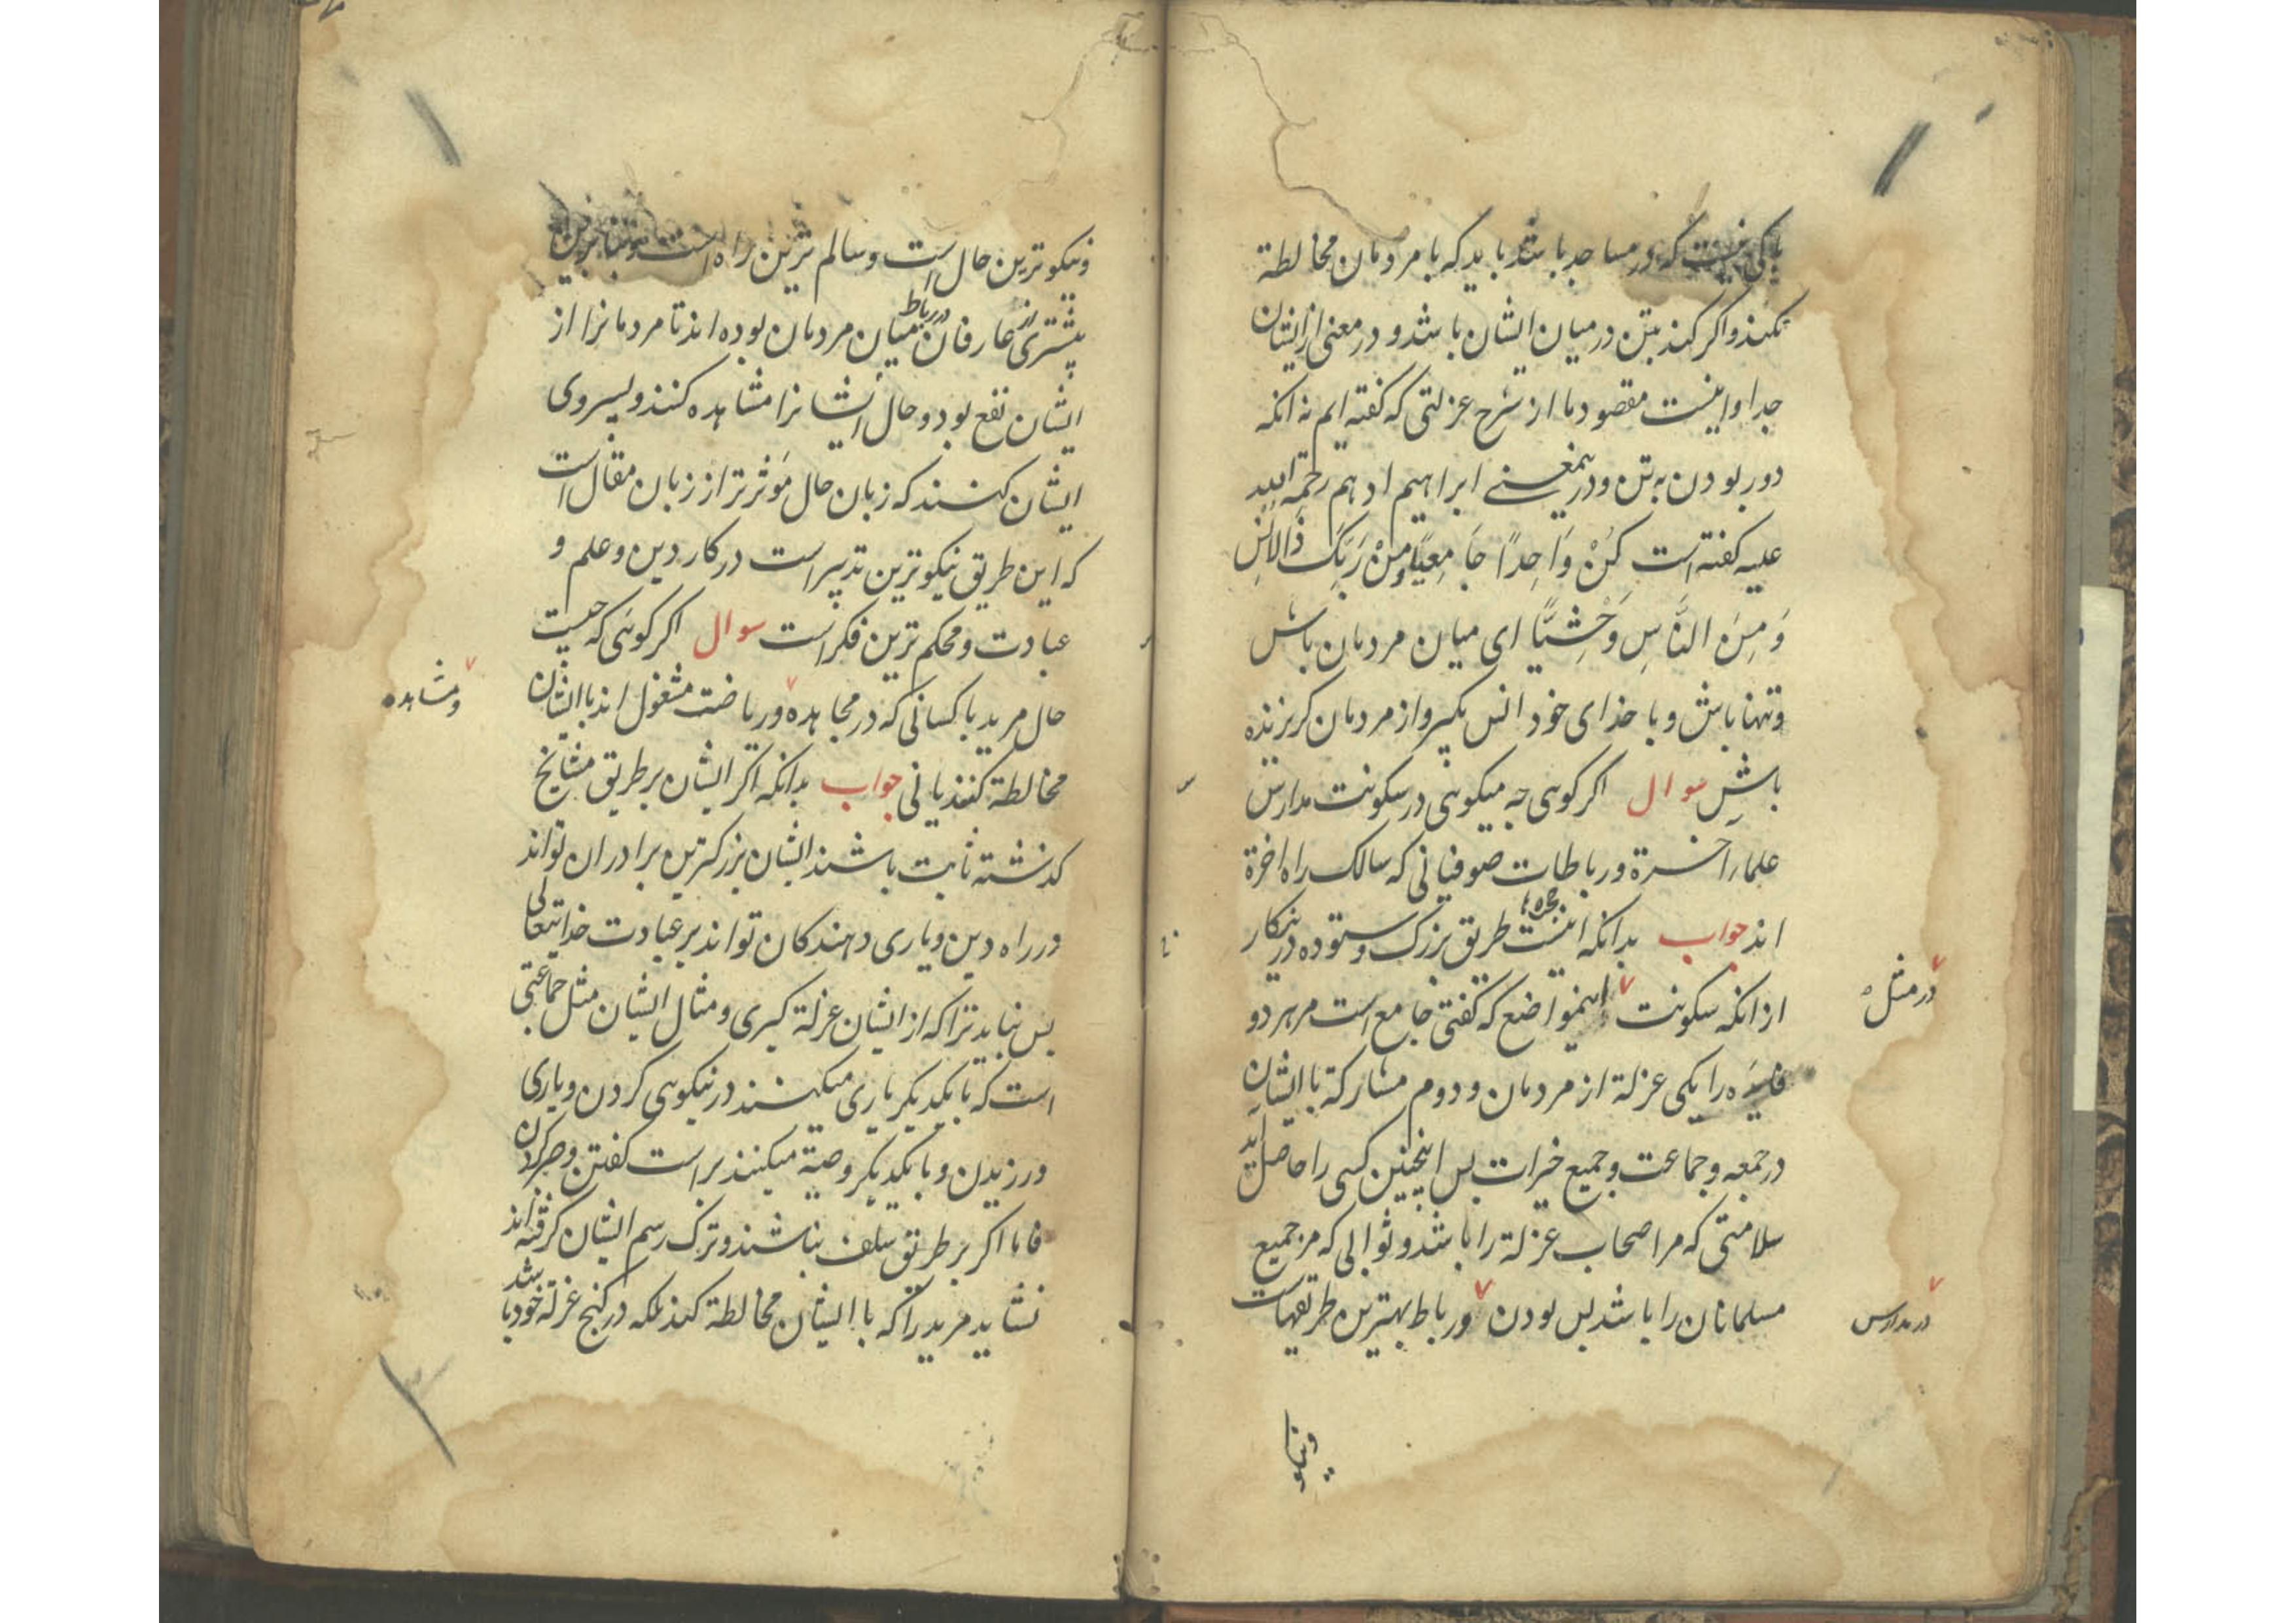 باکی نیست که در مساجد باشد باید که با مردمان مخالطة
نکند و اکر کند بتن در میان ایشان باشد و در معنی از ایشان
جدا و اینست مقصود ما از شرح عزلتی که کفته ایم نه انکه
دور بودن به تن و درینمعنی ابراهیم ادهم رحمة الله
علیه کفته است کُنْ وَاحِداً جَامِعِیًّا وَمِنْ رَبِّکَ ذَا لاُنْسِ
وَ مِنَ النَّاسِ وَحْشِیًّا ای میان مردمان باش
و تنها باش و با خدای خود انس بکیر و از مردمان کریزنده
باش سوال اکر کوئی چه میکوئی در سکونت مدارس
علماء اخرة و رباطات صوفیانی که سالک راه اخرة
اند جواب بدانکه اینست طریق بزرک و ستوده درینکار
از انکه سکونت اینمواضع که کفتی جامع است مر هر دو
در مثل
فایده را یکی عزلة از مردمان و دوم مشارکة با ایشان
در جمعه و جماعت و جمیع خیرات بس اینچنین کسی را حاصل اید
سلامتی که مر اصحاب عزلة را باشد و ثوابی که مر جمیع
مسلمانان را باشد بس بودن و رباط بهترین طریقهاست
در مدارس
و نیکو
و نیکوترین حال است و سالم ترین راه است
در رباط
بیشتری از عارفان میان مردمان بوده اند تا مردمانرا از
ایشان نفع بود و حال ایشانرا مشاهده کنند و پسروی
ایشان کنند که زبان حال مؤثرتر از زبان مقال است
که این طریق نیکوترین تدبیر است در کار دین و علم و
عبادت و محکم ترین فکر است سوال اکر کوئی که چیست
حال مرید با کسانی که در مجاهده و ریاضت مشغول اند با ایشان
و مشاهده
مخالطة کنند یا نی جواب بدانکه اکر ایشان بر طریق مشایخ
کذشته ثابت باشند ایشان بزرکترین برادران تو اند
در راه دین و یاری دهندکان تو اند بر عبادت خدایتعالی
بس نباید ترا که از ایشان عزلة کیری و مثال ایشان مثل جماعتی
است که با یکدیکر یاری میکنند در نیکوئی کردن و یاری
ورزیدن و با یکدیکر وصیة میکنند براست کفتن و صبر کردن
فاما اکر بر طریق سلف نباشند و ترک رسم ایشان کرفته اند
نشاید مرید را که با ایشان مخالطة کند بلکه در کنج عزلة خود باشد